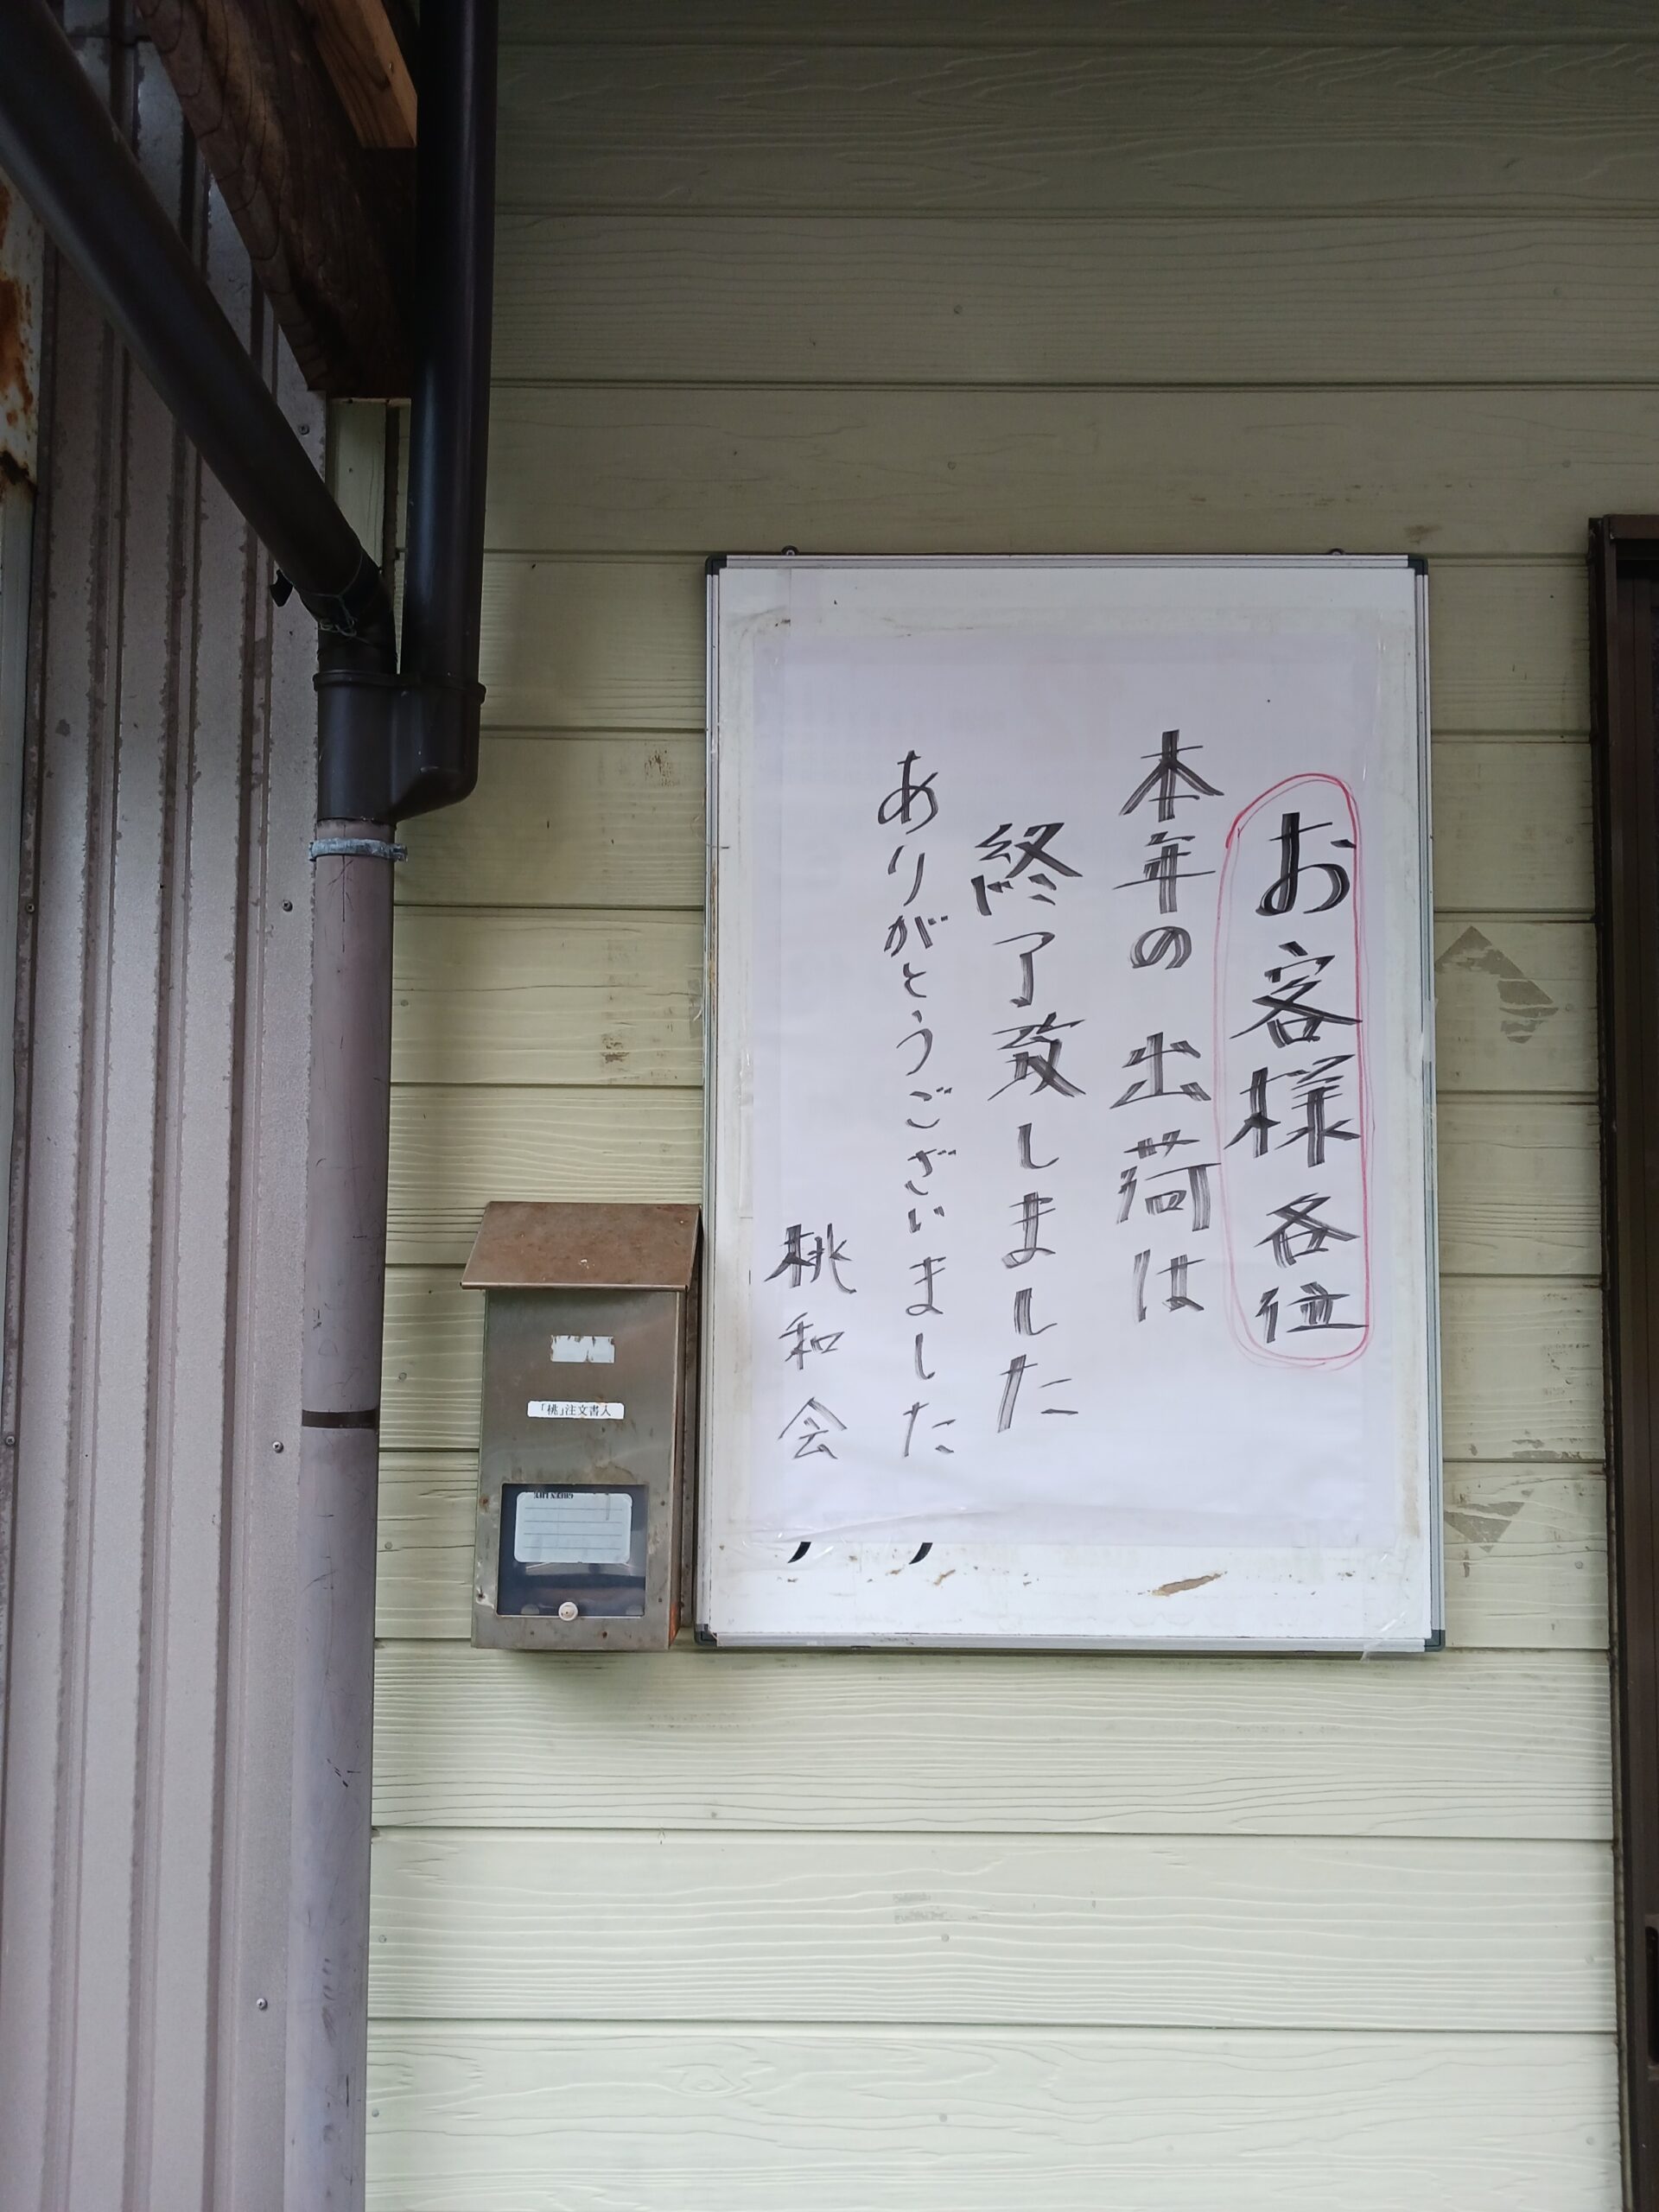 お客様各位
本年の出荷は
終了致しました
ありがとうございました
桃和会
「桃」注文書入